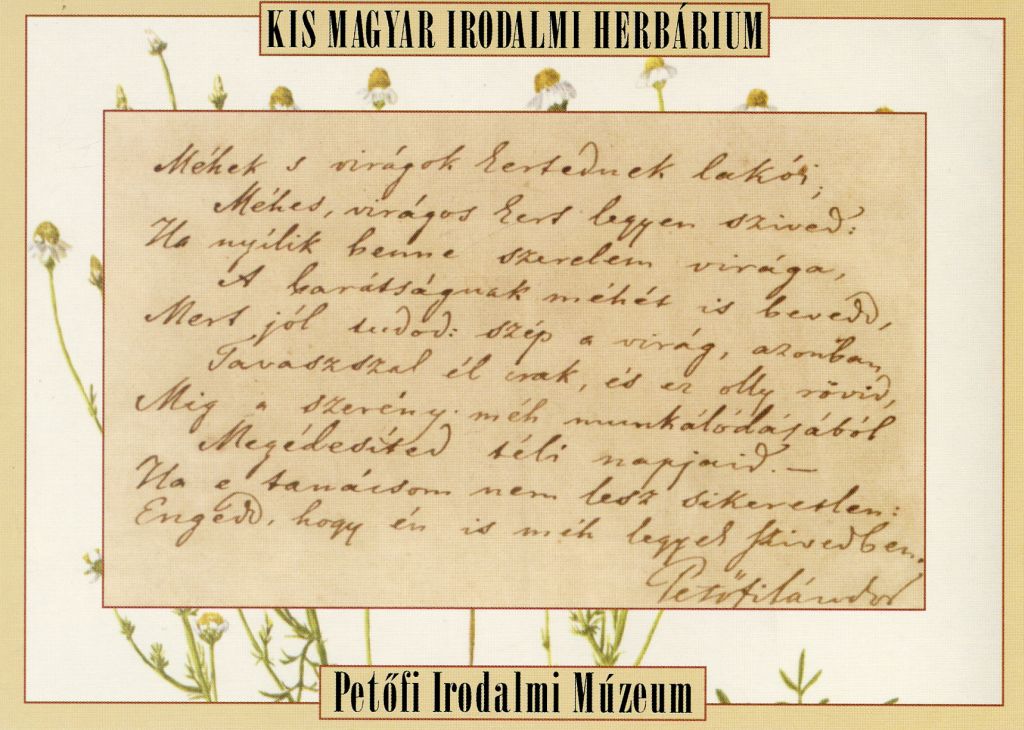 KIS MAGYAR IRODALMI HERBÁRIUM
Méhek s virágok kertednek lakói;
Méhes, virágos kert legyen szived:
Ha nyílik benne szerelem virága,
A barátságnak méhét is bevedd,
Mert jól tudod: szép a virág, azonban
Tavaszszal él csak, és ez olly rövid,
Mig a szerény méh munkálódásából
Megédesíted téli napjaid. –
Ha e tanácsom nem lesz sikeretlen:
Engedd, hogy én is méh legyek szivedben.
Petőfi Sándor
Petőfi Irodalmi Múzeum